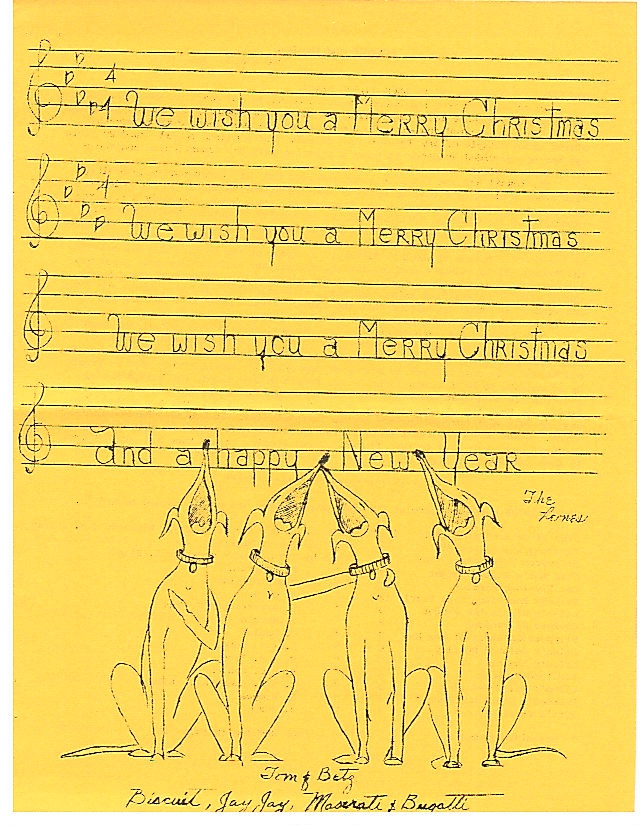 We wish you a Merry Christmas
We wish you a Merry Christmas
We wish you a Merry Christmas
and a happy New Year
The
Tom & Betz
Biscuit, Jay Jay, Maserati & Bugatti